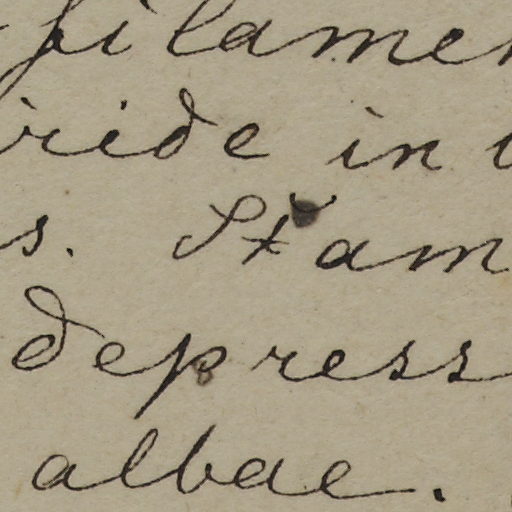 filamen
ride in
s. Stam
depress
albae.